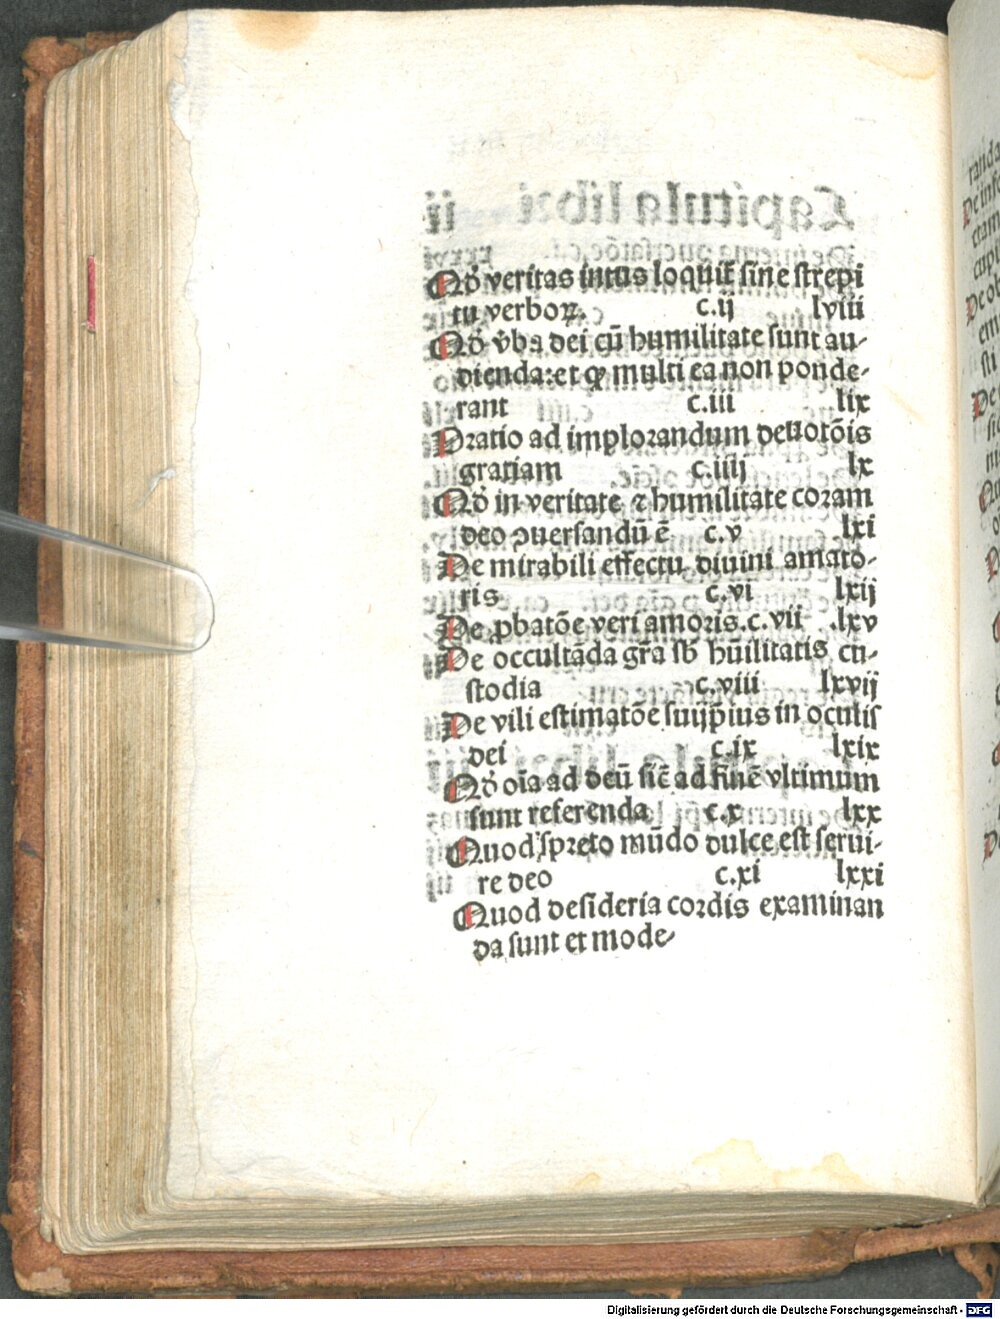 Qꝺ veritas intus loquit᷑ sine strepi
tu verboꝝ. c.ij lviii
Qꝺ v̄ba dei cū humilitate sunt au-
dienda:et ꝙ multi ea non ponde-
rant c.iii lix
Oratio ad implorandum deuotōis
gratiam c.iiij lx
Qꝺ in veritate ⁊ humilitate coram
deo ꝯuersandū ē c.v lxi
De mirabili effectu diuini amato-
ris c.vi lxij
De ꝓbatōe veri amoris.c.vii .lxv
De occultāda gr̄a sb̄ hūilitatis cu-
stodia c.viii lxvij
De vili estimatōe suijp̄ius in oculis
dei c.ix lxix
Qꝺ oīa ad deū sic̄ ad finē vltimum
sunt referenda c.x lxx
Quod spreto mūdo dulce est serui-
re deo c.xi lxxi
Quod desideria cordis examinan
da sunt et mode-
Digitalisierung gefördert durch die Deutsche Forschungsgemeinschaft - DFG